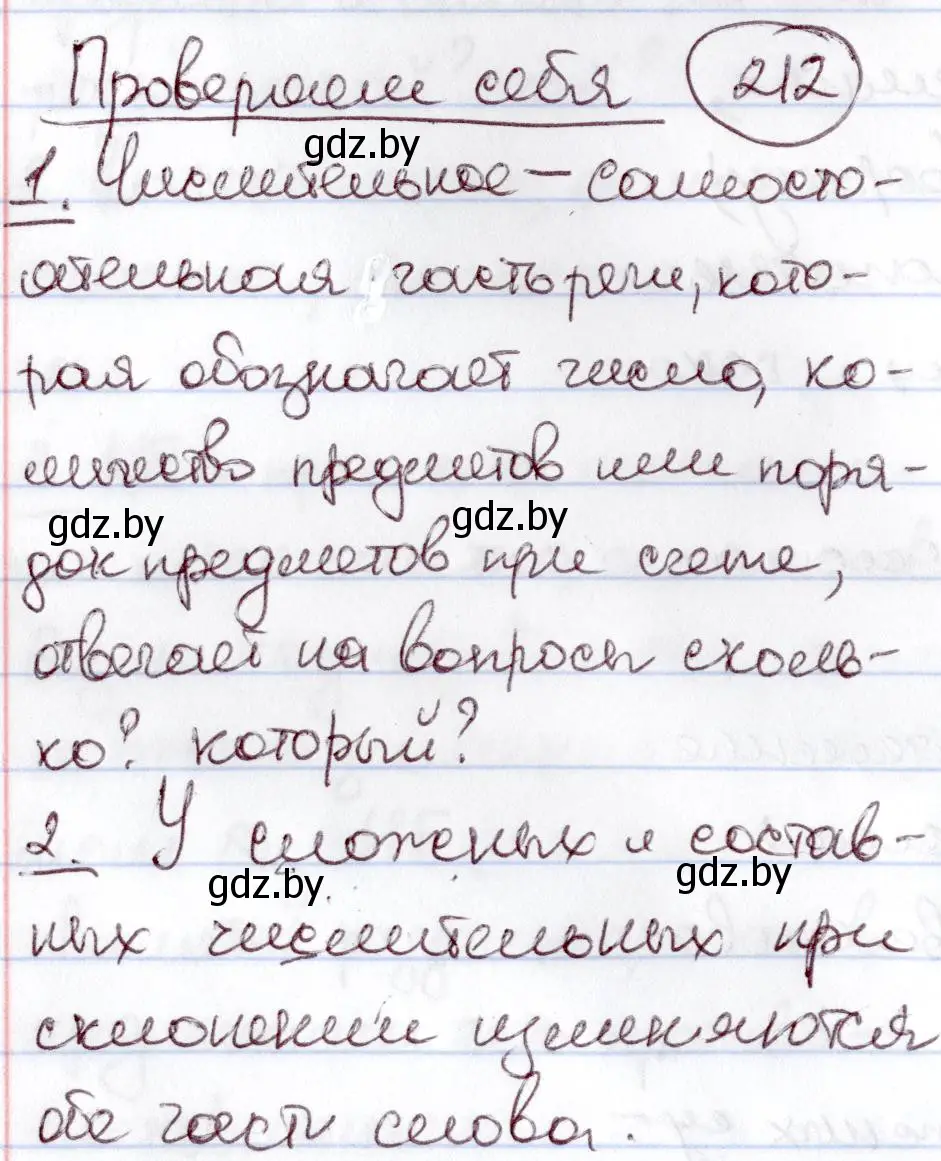 Проверяем себя 212
gdz.by
1. Числительное – самосто-
ятельная часть речи, кото-
рая обозначает число, ко-
личество предметов или поря-
gdz.by gdz.by
док предметов при счете,
отвечает на вопросы сколь-
ко? который?
2. У сложных и состав-
gdz.by gdz.by
ных числительных при
склонении изменяются
обе части слова.